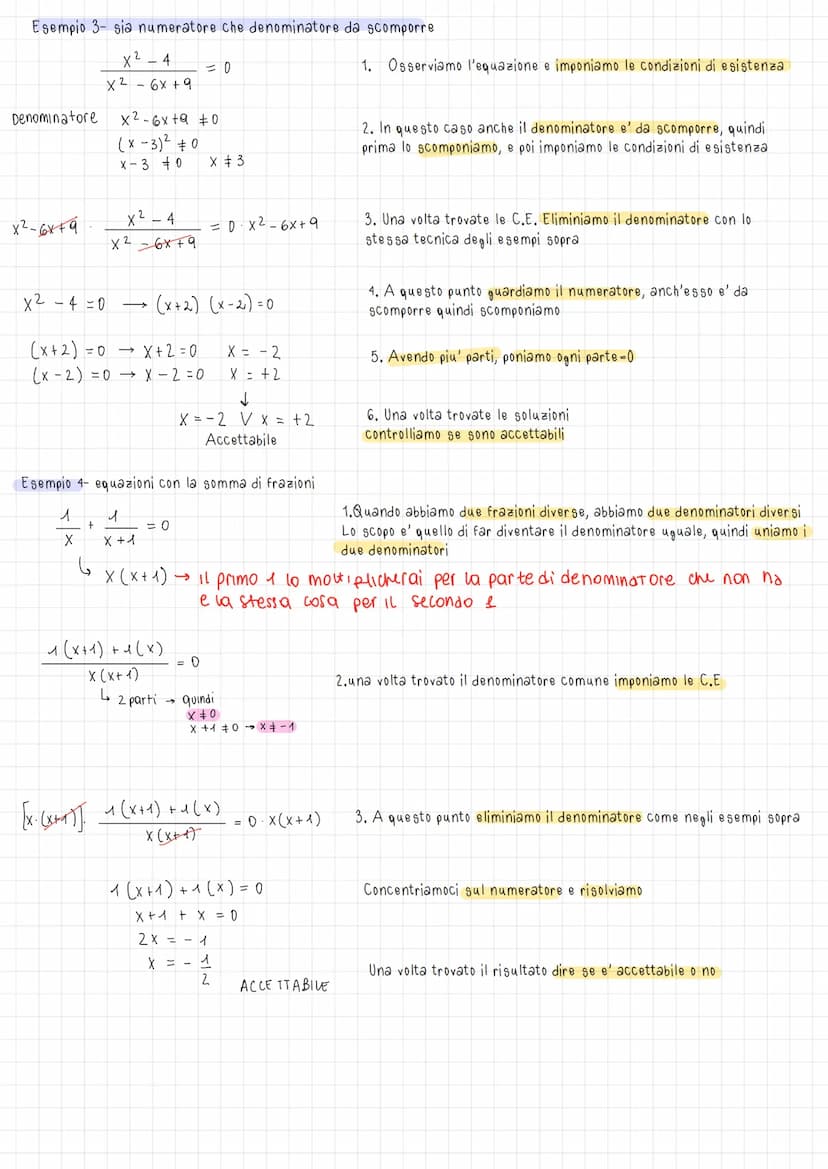 Esempio 3- sia numeratore che denominatore da scomporre
x² - 4 / x² - 6x + 9 = 0
1. Osserviamo l'equazione e imponiamo le condizioni di esistenza
Denominatore x² - 6x + 9 ≠ 0
(x - 3)² ≠ 0
x - 3 ≠ 0 x ≠ 3
2. In questo caso anche il denominatore e' da scomporre, quindi
prima lo scomponiamo, e poi imponiamo le condizioni di esistenza
x² - 6x + 9 · x² - 4 / x² - 6x + 9 = 0 · x² - 6x + 9
3. Una volta trovate le C.E. Eliminiamo il denominatore con lo
stessa tecnica degli esempi sopra
x² - 4 = 0 → (x+2) (x-2) = 0
4. A questo punto guardiamo il numeratore, anch'esso e' da
scomporre quindi scomponiamo
(x+2) = 0 → x+2 = 0 x = -2
(x-2) = 0 → x-2 = 0 x = +2
5. Avendo piu' parti, poniamo ogni parte=0
↓
x = -2 V x = +2
Accettabile
6. Una volta trovate le soluzioni
controlliamo se sono accettabili
Esempio 4- equazioni con la somma di frazioni
1/x + 1/x+1 = 0
1.Quando abbiamo due frazioni diverse, abbiamo due denominatori diversi
Lo scopo e' quello di far diventare il denominatore uguale, quindi uniamo i
due denominatori
↳ x(x+1) → il primo 1 lo moltiplicherai per la parte di denominatore che non ha
e la stessa cosa per il secondo 1
1(x+1) + 1(x) / x(x+1) = 0
↳ 2 parti → quindi
x ≠ 0
x+1 ≠ 0 → x ≠ -1
2.una volta trovato il denominatore comune imponiamo le C.E
[x·(x+1)]· 1(x+1) + 1(x) / x(x+1) = 0 · x(x+1)
3. A questo punto eliminiamo il denominatore come negli esempi sopra
1(x+1) + 1(x) = 0
Concentriamoci sul numeratore e risolviamo
x+1 + x = 0
2x = -1
x = - 1/2
ACCETTABILE
Una volta trovato il risultato dire se e' accettabile o no